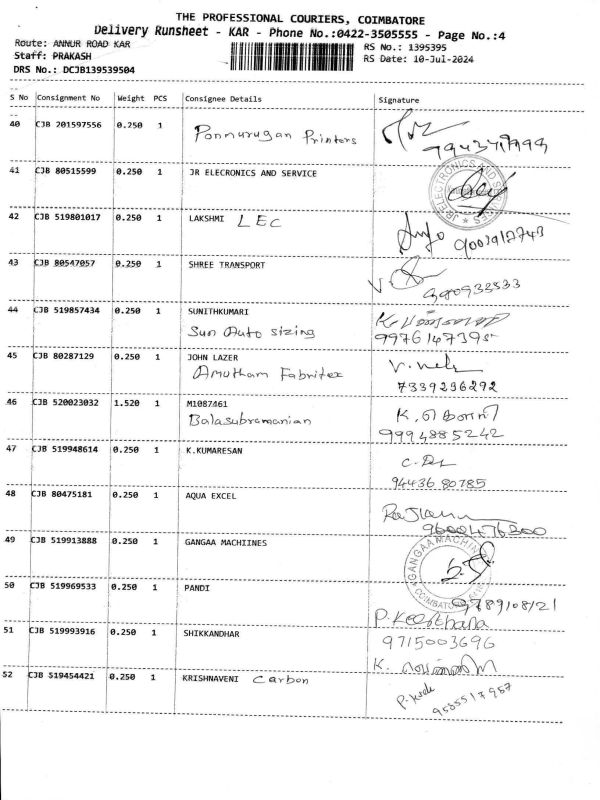 THE PROFESSIONAL COURIERS, COIMBATORE
Delivery Runsheet - KAR - Phone No.:0422-3505555 - Page No.:4
Route: ANNUR ROAD KAR
RS No.: 1395395
Staff: PRAKASH
RS Date: 10-Jul-2024
DRS No.: DCJB139539504
S No Consignment No Weight PCS Consignee Details Signature
40 CJB 201597556 0.250 1 Ponmurugan Printers
41 CJB 80515599 0.250 1 JR ELECRONICS AND SERVICE
JR ELECTRONICS AND SERVICES
42 CJB 519801017 0.250 1 LAKSHMI LEC
9003912743
43 CJB 80547057 0.250 1 SHREE TRANSPORT
44 CJB 519857434 0.250 1 SUNITHKUMARI
Sun Auto sizing
9976147395
45 CJB 80287129 0.250 1 JOHN LAZER
Amutham Fabritex
7339236292
46 CJB 520023032 1.520 1 M1087461
Balasubramanian
9994885242
47 CJB 519948614 0.250 1 K.KUMARESAN
94436 80785
48 CJB 80475181 0.250 1 AQUA EXCEL
9600476200
49 CJB 519913888 0.250 1 GANGAA MACHIINES
50 CJB 519969533 0.250 1 PANDI
P. Keerthana
51 CJB 519993916 0.250 1 SHIKKANDHAR
9715003696
52 CJB 519454421 0.250 1 KRISHNAVENI Carbon